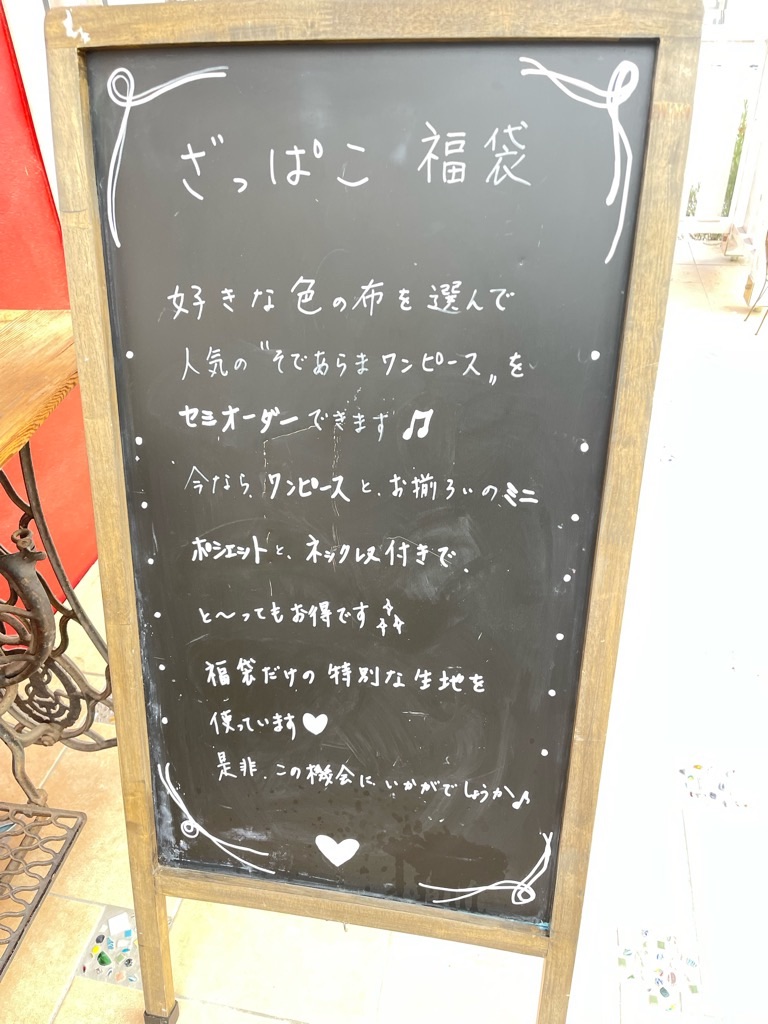 ざっぱこ 福袋
好きな色の布を選んで
人気の"そであらまワンピース"を
セミオーダーできます♫
今なら、ワンピースと、お揃ろいのミニ
ポシェットと、ネックレス付きで、
と〜ってもお得です
福袋だけの特別な生地を
使っています♥
是非、この機会に、いかがでしょうか♪